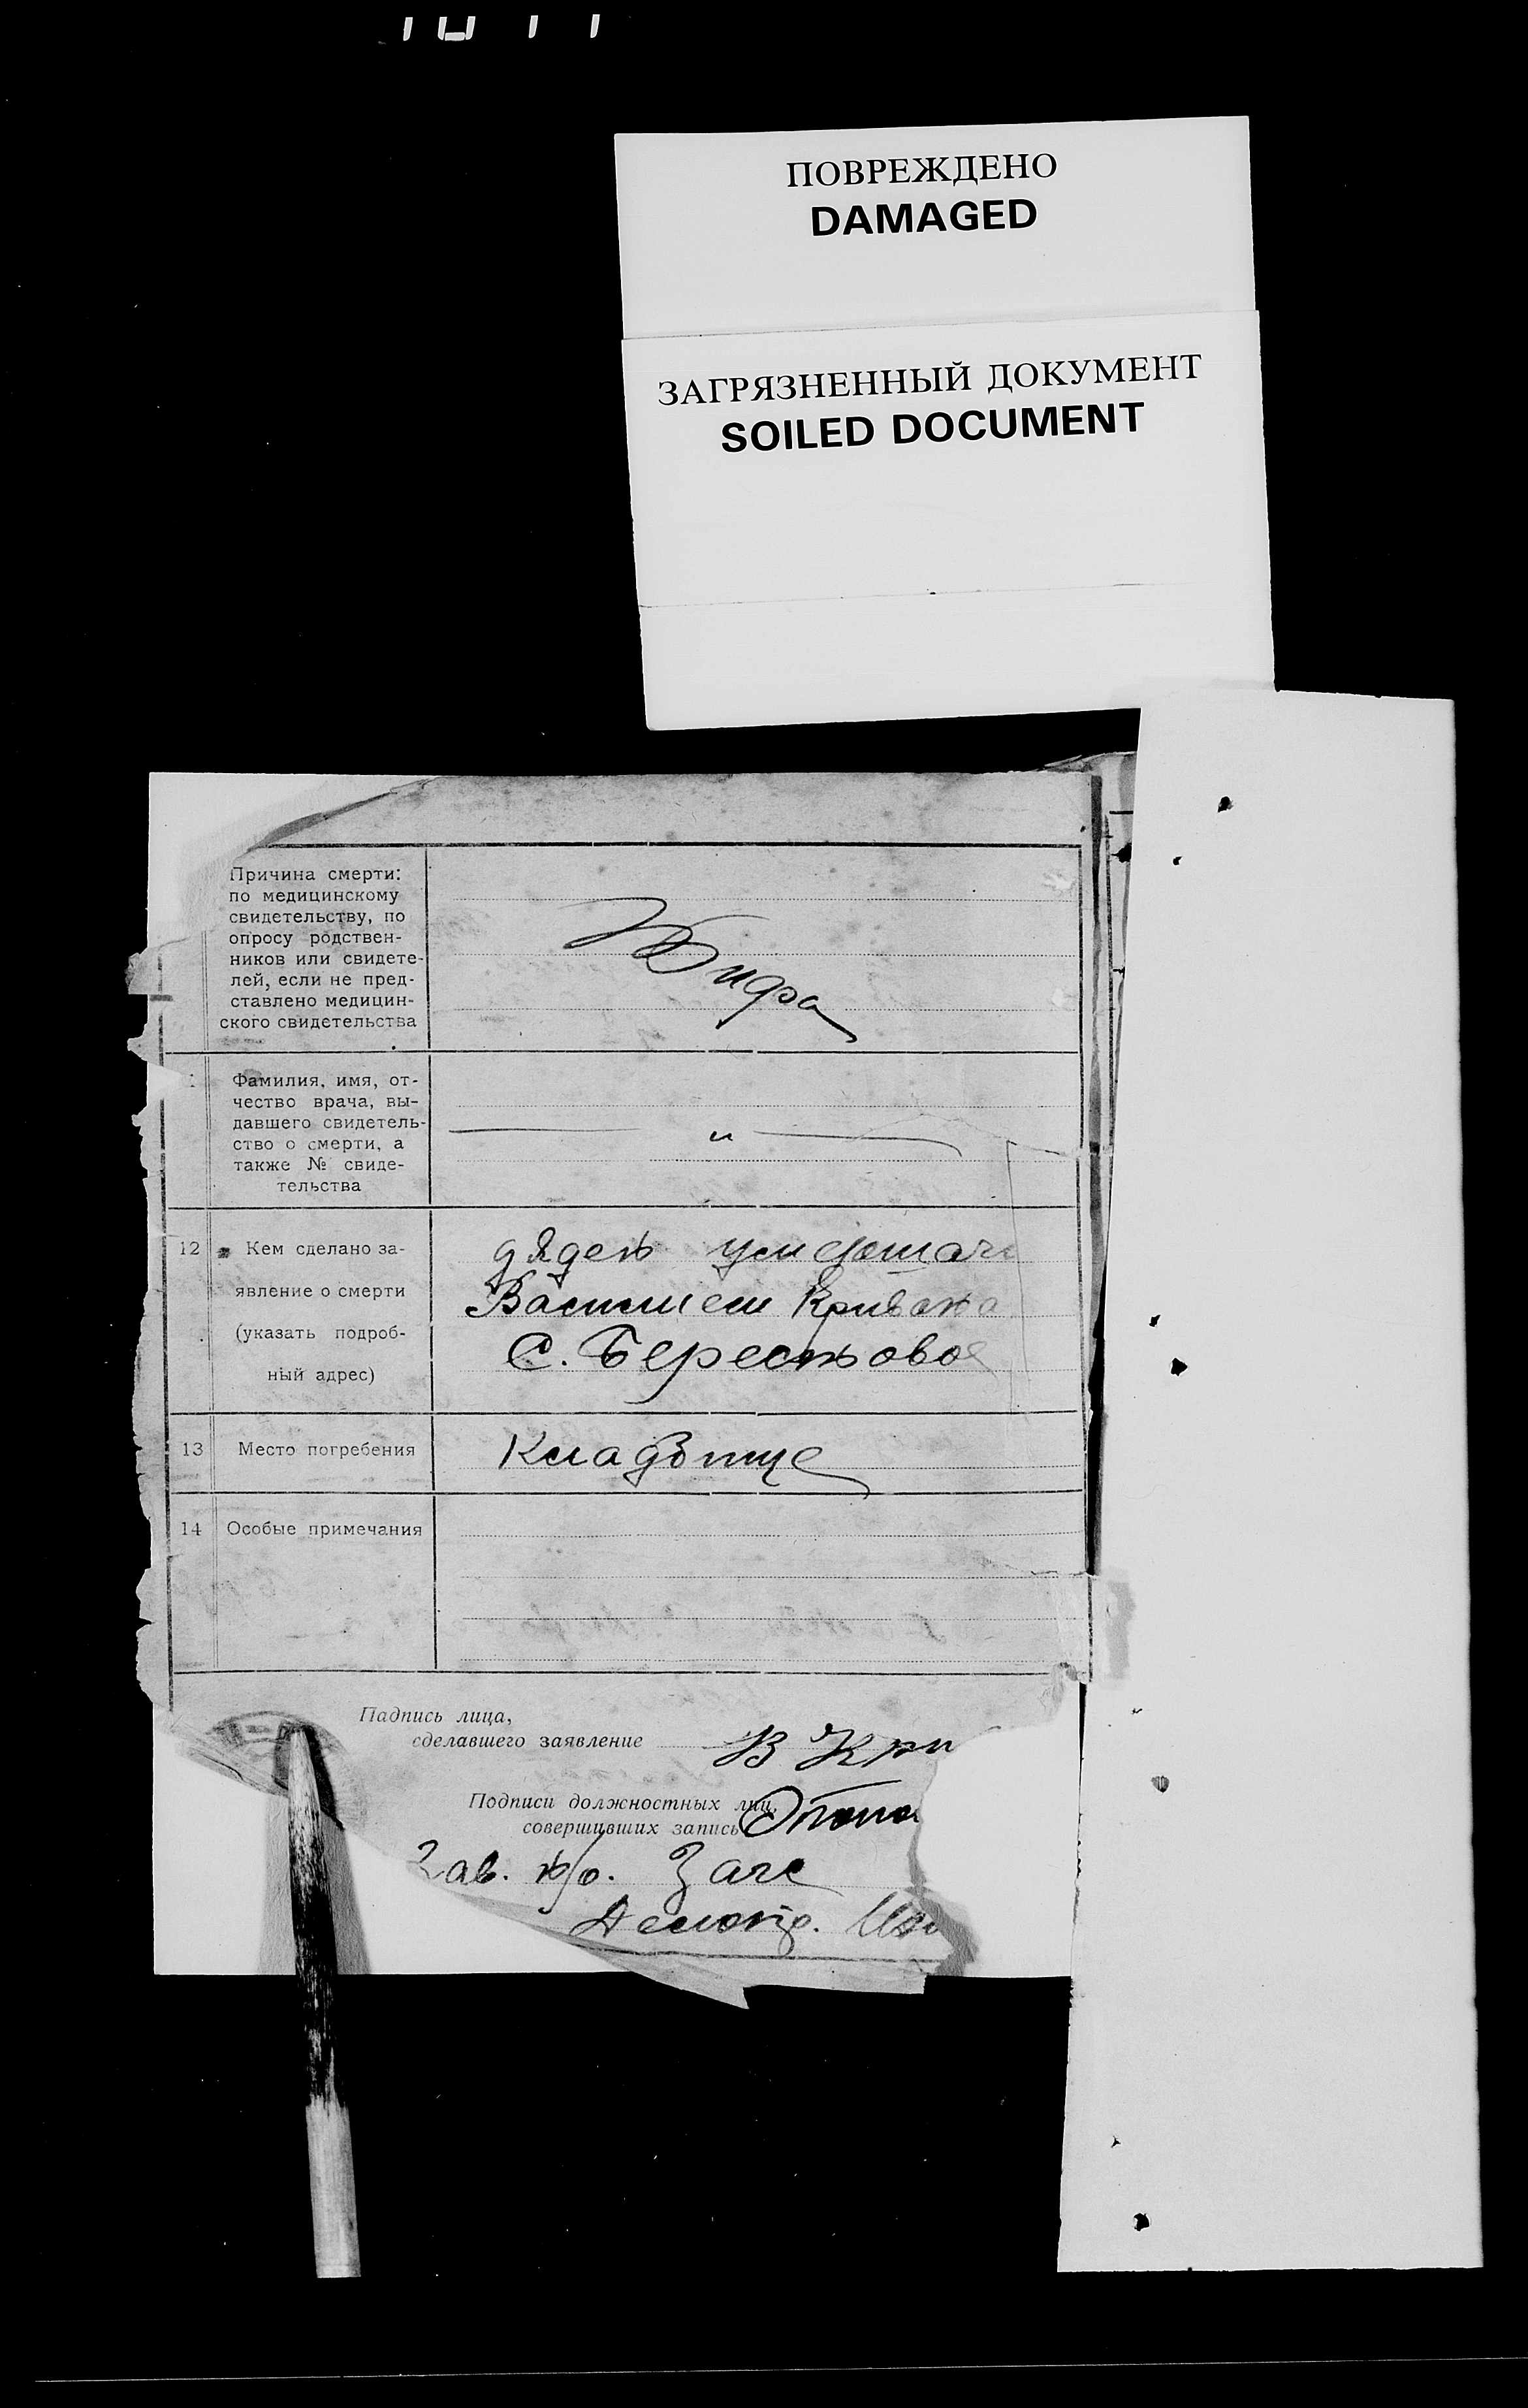 ПОВРЕЖДЕНО
DAMAGED
ЗАГРЯЗНЕННЫЙ ДОКУМЕНТ
SOILED DOCUMENT
Причина смерти:
по медицинскому
свидетельству, по
опросу родствен-
ников или свидете-
лей, если не пред-
ставлено медицин-
ского свидетельства
Фамилия, имя, от-
чество врача, вы-
давшего свидетель-
ство о смерти, а
также № свиде-
тельства
— " —
12 Кем сделано за-
явление о смерти
(указать подроб-
ный адрес)
дядей
Василием
С. Берестовое
13 Место погребения
Кладбище
14 Особые примечания
Падпись лица,
сделавшего заявление
В Кри
Подписи должностных лиц,
совершивших запись
Зав. п/о. Загс